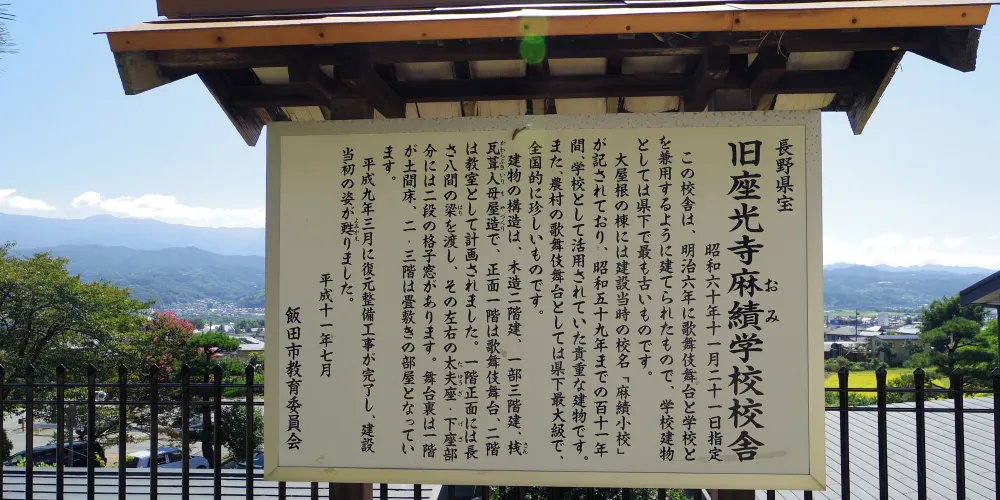 長野県宝
旧座光寺麻績学校校舎
おみ
昭和六十年十一月二十一日指定
この校舎は、明治六年に歌舞伎舞台と学校と
を兼用するように建てられたもので、学校建物
としては県下で最も古いものです。
大屋根の棟には建設当時の校名「麻績小校」
が記されており、昭和五十九年までの百十一年
間、学校として活用されていた貴重な建物です。
また、農村の歌舞伎舞台としては県下最大級で、
全国的に珍しいものです。
建物の構造は、木造二階建、一部三階建、桟
さん
瓦葺入母屋造で、正面一階は歌舞伎舞台、二階
は教室として計画されました。一階正面には長
さ八間の梁を渡し、その左右の太夫座・下座部
分には二段の格子窓があります。舞台裏は一階
が土間床、二・三階は畳敷きの部屋となってい
ます。
平成九年三月に復元整備工事が完了し、建設
当初の姿が甦りました。
よみがえ
平成十一年七月
飯田市教育委員会